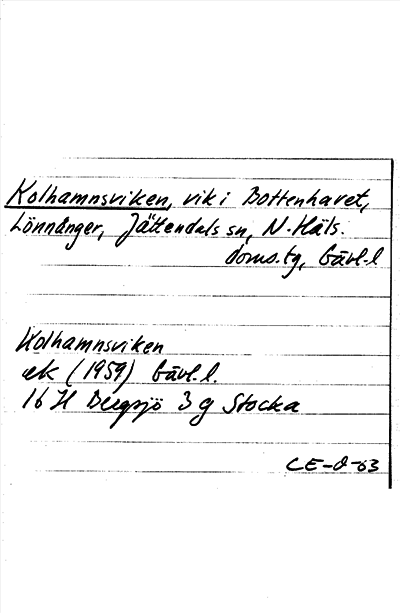 Kolhamnsviken, vik i Bottenhavet,
Lönnånger, Jättendals sn, N. Häls.
doms.tg, Gävl. l
Kolhamnsviken
ek (1959) Gävl. l.
16 H Bergsjö 3 g Stocka
CE-O-63